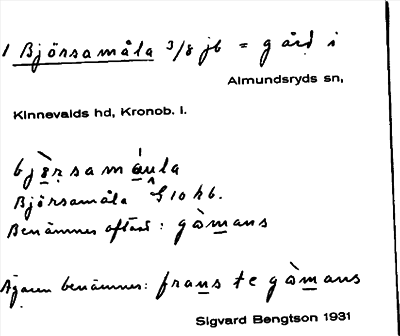 1 Björsamåla 3/8 jb = gård i
Almundsryds sn,
Kinnevalds hd, Kronob. l.
bjö̀rsamáula
Björsamåla S 10 h6.
Benämnes oftast: gàmans
Ägaren benämnes: frans te gàmans
Sigvard Bengtson 1931